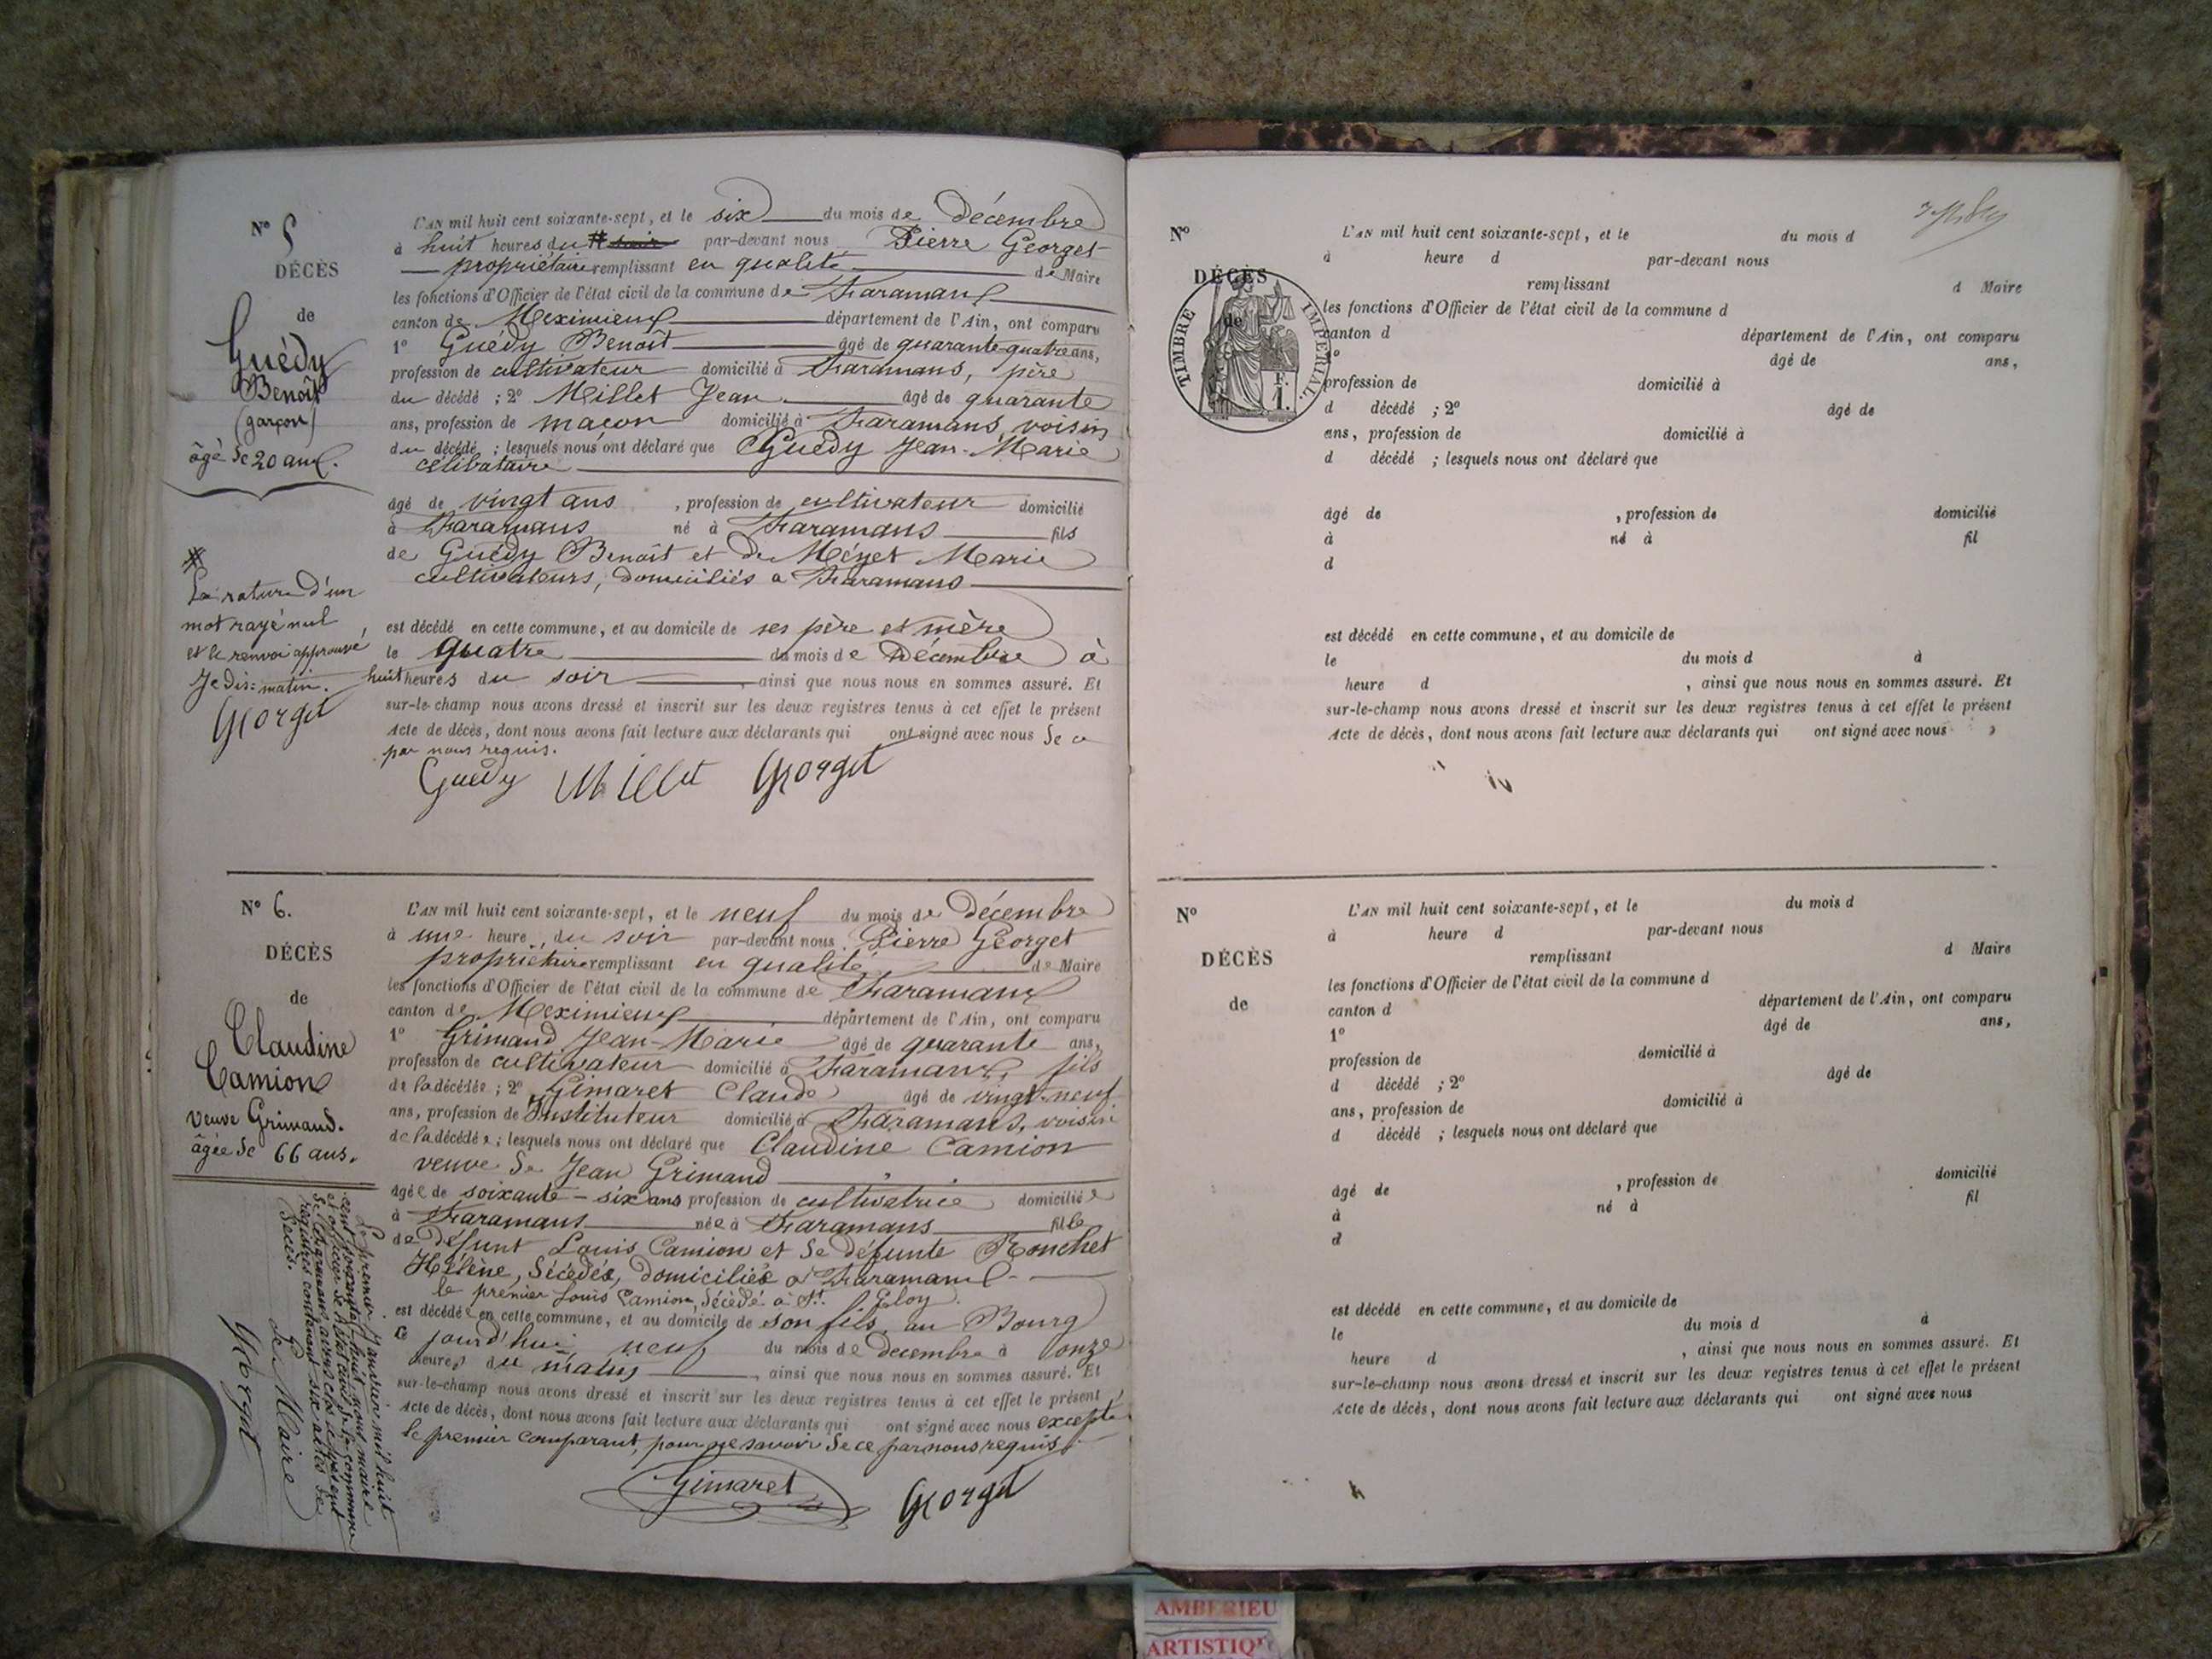 N° 5
DÉCÈS
de
Guédy
Benoît
(garçon)
âgé de 20 ans.
L'AN mil huit cent soixante-sept, et le six du mois de décembre
à huit heures du # soir par-devant nous Pierre Georget
propriétaire remplissant en qualité de Maire
les fonctions d'Officier de l'état civil de la commune de Faramans
canton de Meximieux département de l'Ain, ont comparu
1° Guédy Benoît âgé de quarante-quatre ans,
profession de cultivateur domicilié à Faramans, père
du décédé ; 2° Millet Jean âgé de quarante
ans, profession de maçon domicilié à Faramans, voisin
du décédé ; lesquels nous ont déclaré que Guédy Jean-Marie
célibataire
âgé de vingt ans , profession de cultivateur domicilié
à Faramans né à Faramans fils
de Guédy Benoît et de Marie
cultivateurs, domiciliés à Faramans
est décédé en cette commune, et au domicile de ses père et mère
le quatre du mois de Décembre à
huit heures du soir , ainsi que nous nous en sommes assuré. Et
sur-le-champ nous avons dressé et inscrit sur les deux registres tenus à cet effet le présent
Acte de décès, dont nous avons fait lecture aux déclarants qui ont signé avec nous de ce
par nous requis.
Guédy Millet Georget
#
La rature d'un
mot rayé nul
et le renvoi approuvé
Je dis = matin.
Georget
N° 6.
DÉCÈS
de
Claudine
Camion
veuve Grimaud.
âgée de 66 ans.
L'AN mil huit cent soixante-sept, et le neuf du mois de décembre
à une heure, du soir par-devant nous Pierre Georget
propriétaire remplissant en qualité de Maire
les fonctions d'Officier de l'état civil de la commune de Faramans
canton de Meximieux département de l'Ain, ont comparu
1° Grimaud Jean-Marie âgé de quarante ans,
profession de cultivateur domicilié à Faramans, fils
de la décédée ; 2° Gimaret Claude âgé de vingt-neuf
ans, profession de Instituteur domicilié à Faramans, voisin
de la décédée ; lesquels nous ont déclaré que Claudine Camion
veuve de Jean Grimaud
âgée de soixante-six ans profession de cultivatrice domiciliée
à Faramans née à Faramans fille
de défunt Louis Camion et de défunte Ronchet
Hélène, décédés, domiciliés à Faramans
le premier Louis Camion, décédé à St. Eloy.
est décédée en cette commune, et au domicile de son fils, au Bourg
ce jourd'hui neuf du mois de decembre à onze
heures du matin , ainsi que nous nous en sommes assuré. Et
sur-le-champ nous avons dressé et inscrit sur les deux registres tenus à cet effet le présent
Acte de décès, dont nous avons fait lecture aux déclarants qui ont signé avec nous excepté
le premier comparant, pour ne savoir de ce par nous requis
Gimaret Georget
Le premier Janvier mil huit
cent soixante-huit, nous maire
et officier de l'état civil de la commune
de Faramans avons clos le présent
registres contenant six actes de
décès.
Le Maire
Georget
N°
DÉCÈS
de
TIMBRE IMPÉRIAL.
F.
1.
L'AN mil huit cent soixante-sept, et le du mois d
à heure d par-devant nous
remplissant d Maire
les fonctions d'Officier de l'état civil de la commune d
canton d département de l'Ain, ont comparu
1° âgé de ans,
profession de domicilié à
d décédé ; 2° âgé de
ans, profession de domicilié à
d décédé ; lesquels nous ont déclaré que
âgé de , profession de domicilié
à né à fil
d
est décédé en cette commune, et au domicile de
le du mois d à
heure d , ainsi que nous nous en sommes assuré. Et
sur-le-champ nous avons dressé et inscrit sur les deux registres tenus à cet effet le présent
Acte de décès, dont nous avons fait lecture aux déclarants qui ont signé avec nous
N°
DÉCÈS
de
L'AN mil huit cent soixante-sept, et le du mois d
à heure d par-devant nous
remplissant d Maire
les fonctions d'Officier de l'état civil de la commune d
canton d département de l'Ain, ont comparu
1° âgé de ans,
profession de domicilié à
d décédé ; 2° âgé de
ans, profession de domicilié à
d décédé ; lesquels nous ont déclaré que
âgé de , profession de domicilié
à né à fil
d
est décédé en cette commune, et au domicile de
le du mois d à
heure d , ainsi que nous nous en sommes assuré. Et
sur-le-champ nous avons dressé et inscrit sur les deux registres tenus à cet effet le présent
Acte de décès, dont nous avons fait lecture aux déclarants qui ont signé avec nous
AMBERIEU
ARTISTIQU